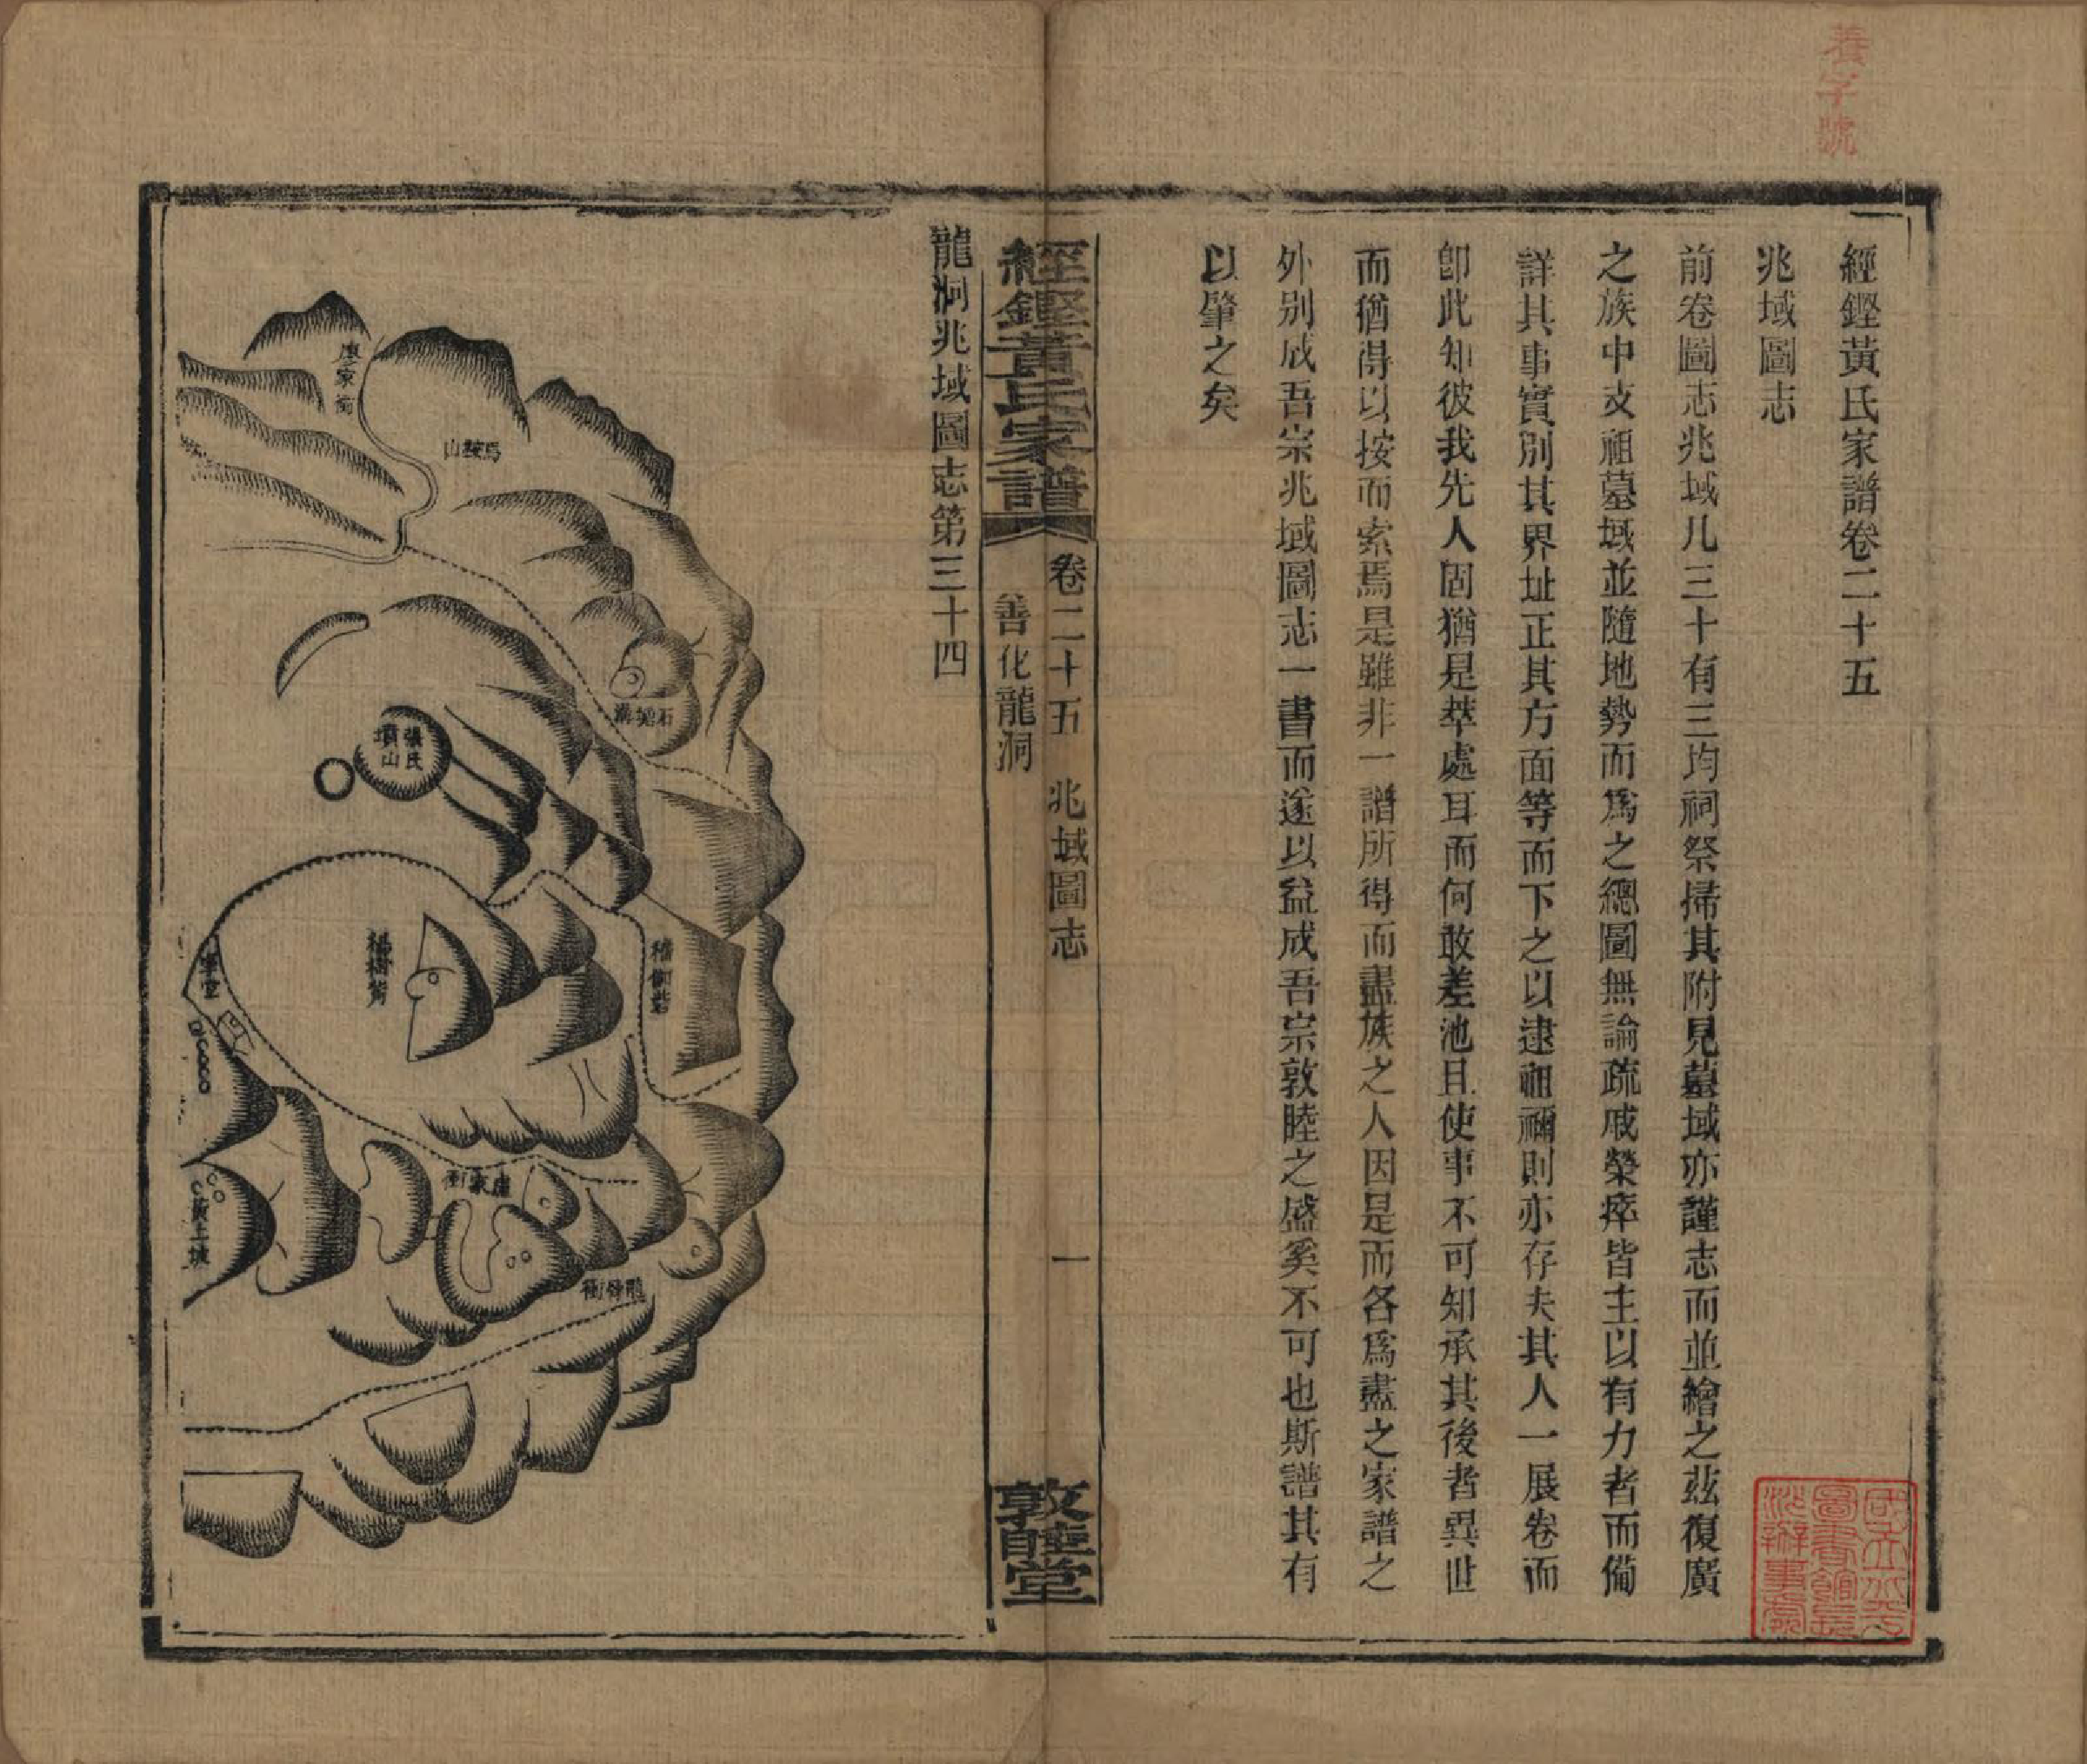 養字號
經鏗黃氏家譜卷二十五
兆域圖志
前卷圖志兆域凡三十有三均祠祭掃其附見墓域亦謹志而並繪之茲復廣
之族中支祖墓域並隨地勢而爲之總圖無論疏戚榮瘁皆主以有力者而備
詳其事實別其界址正其方面等而下之以逮祖禰則亦存夫其人一展卷而
卽此知彼我先人固猶是萃處耳而何敢差池且使事不可知承其後者異世
而猶得以按而索焉是雖非一譜所得而盡族之人因是而各爲盡之家譜之
外別成吾宗兆域圖志一書而遂以益成吾宗敦睦之盛奚不可也斯譜其有
以肇之矣
國立北平圖書館長沙辦事處
經鏗黃氏家譜
卷二十五 兆域圖志
善化龍洞
一
敦睦堂
龍洞兆域圖志第三十四
馬鞍山
張氏墳山
黃土坡